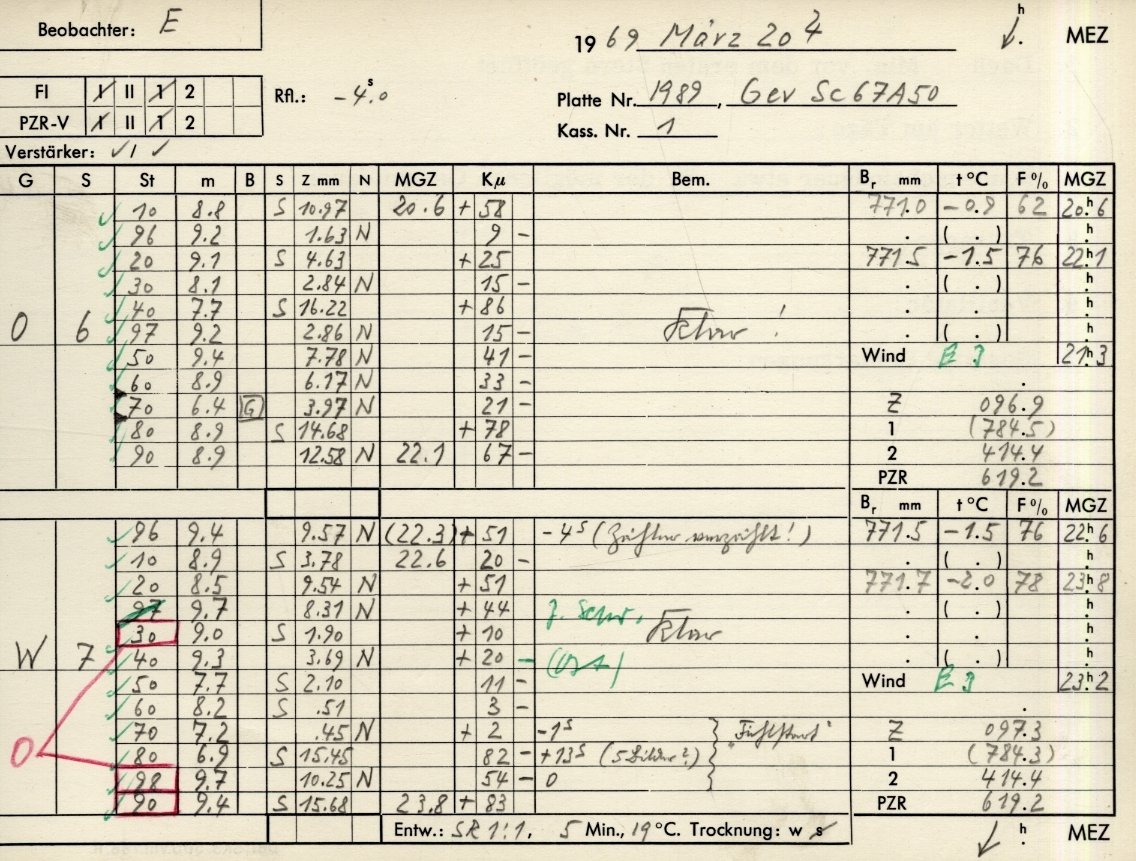 Beobachter: E
h
1969 März 20 MEZ
FI I II 1 2
Rfl.: -4ˢ.0
Platte Nr. 1989, Gev Sc67A50
PZR-V I II 1 2
Kass. Nr. 1
Verstärker: ✓ / ✓
G S St m B S Z mm N MGZ Kμ Bem. Br mm t°C F% MGZ
10 8.8 S 10.97 20.6 + 58 771.0 -0.9 62 20h6
96 9.2 1.63 N 9 - . ( . ) h.
20 9.1 S 4.63 + 25 771.5 -1.5 76 22h1
30 8.1 2.84 N 15 - . ( . ) h.
40 7.7 S 16.22 + 86 . . h.
O 6 97 9.2 2.86 N 15 - Klar! . ( . ) h.
50 9.4 7.78 N 41 - Wind E 3 21h3
60 8.9 6.17 N 33 - .
70 6.4 G 3.97 N 21 - Z 096.9
80 8.9 S 14.68 + 78 1 (784.5)
90 8.9 12.58 N 22.1 67 - 2 414.4
PZR 619.2
Br mm t°C F% MGZ
96 9.4 9.57 N (22.3) + 51 -4ˢ (Zähler verzählt!) 771.5 -1.5 76 22h6
10 8.9 S 3.78 22.6 20 - . ( . ) h.
20 8.5 9.54 N + 51 771.7 -2.0 78 23h8
97 9.7 8.31 N + 44 . ( . ) h.
30 9.0 S 1.90 + 10 Klar . . h.
W 7 40 9.3 3.69 N + 20 - (Ost) . ( . ) h.
50 7.7 S 2.10 11 - Wind E 3 23h2
60 8.2 S .51 3 - .
70 7.2 .45 N + 2 -1ˢ } "Fühlstart" Z 097.3
O 80 6.9 S 15.45 82 - +13ˢ (5 Bilder?) 1 (784.3)
98 9.7 10.25 N 54 - 0 2 414.4
90 9.4 S 15.68 23.8 + 83 PZR 619.2
Entw.: SR 1:1, 5 Min., 19°C. Trocknung: w s
h. MEZ